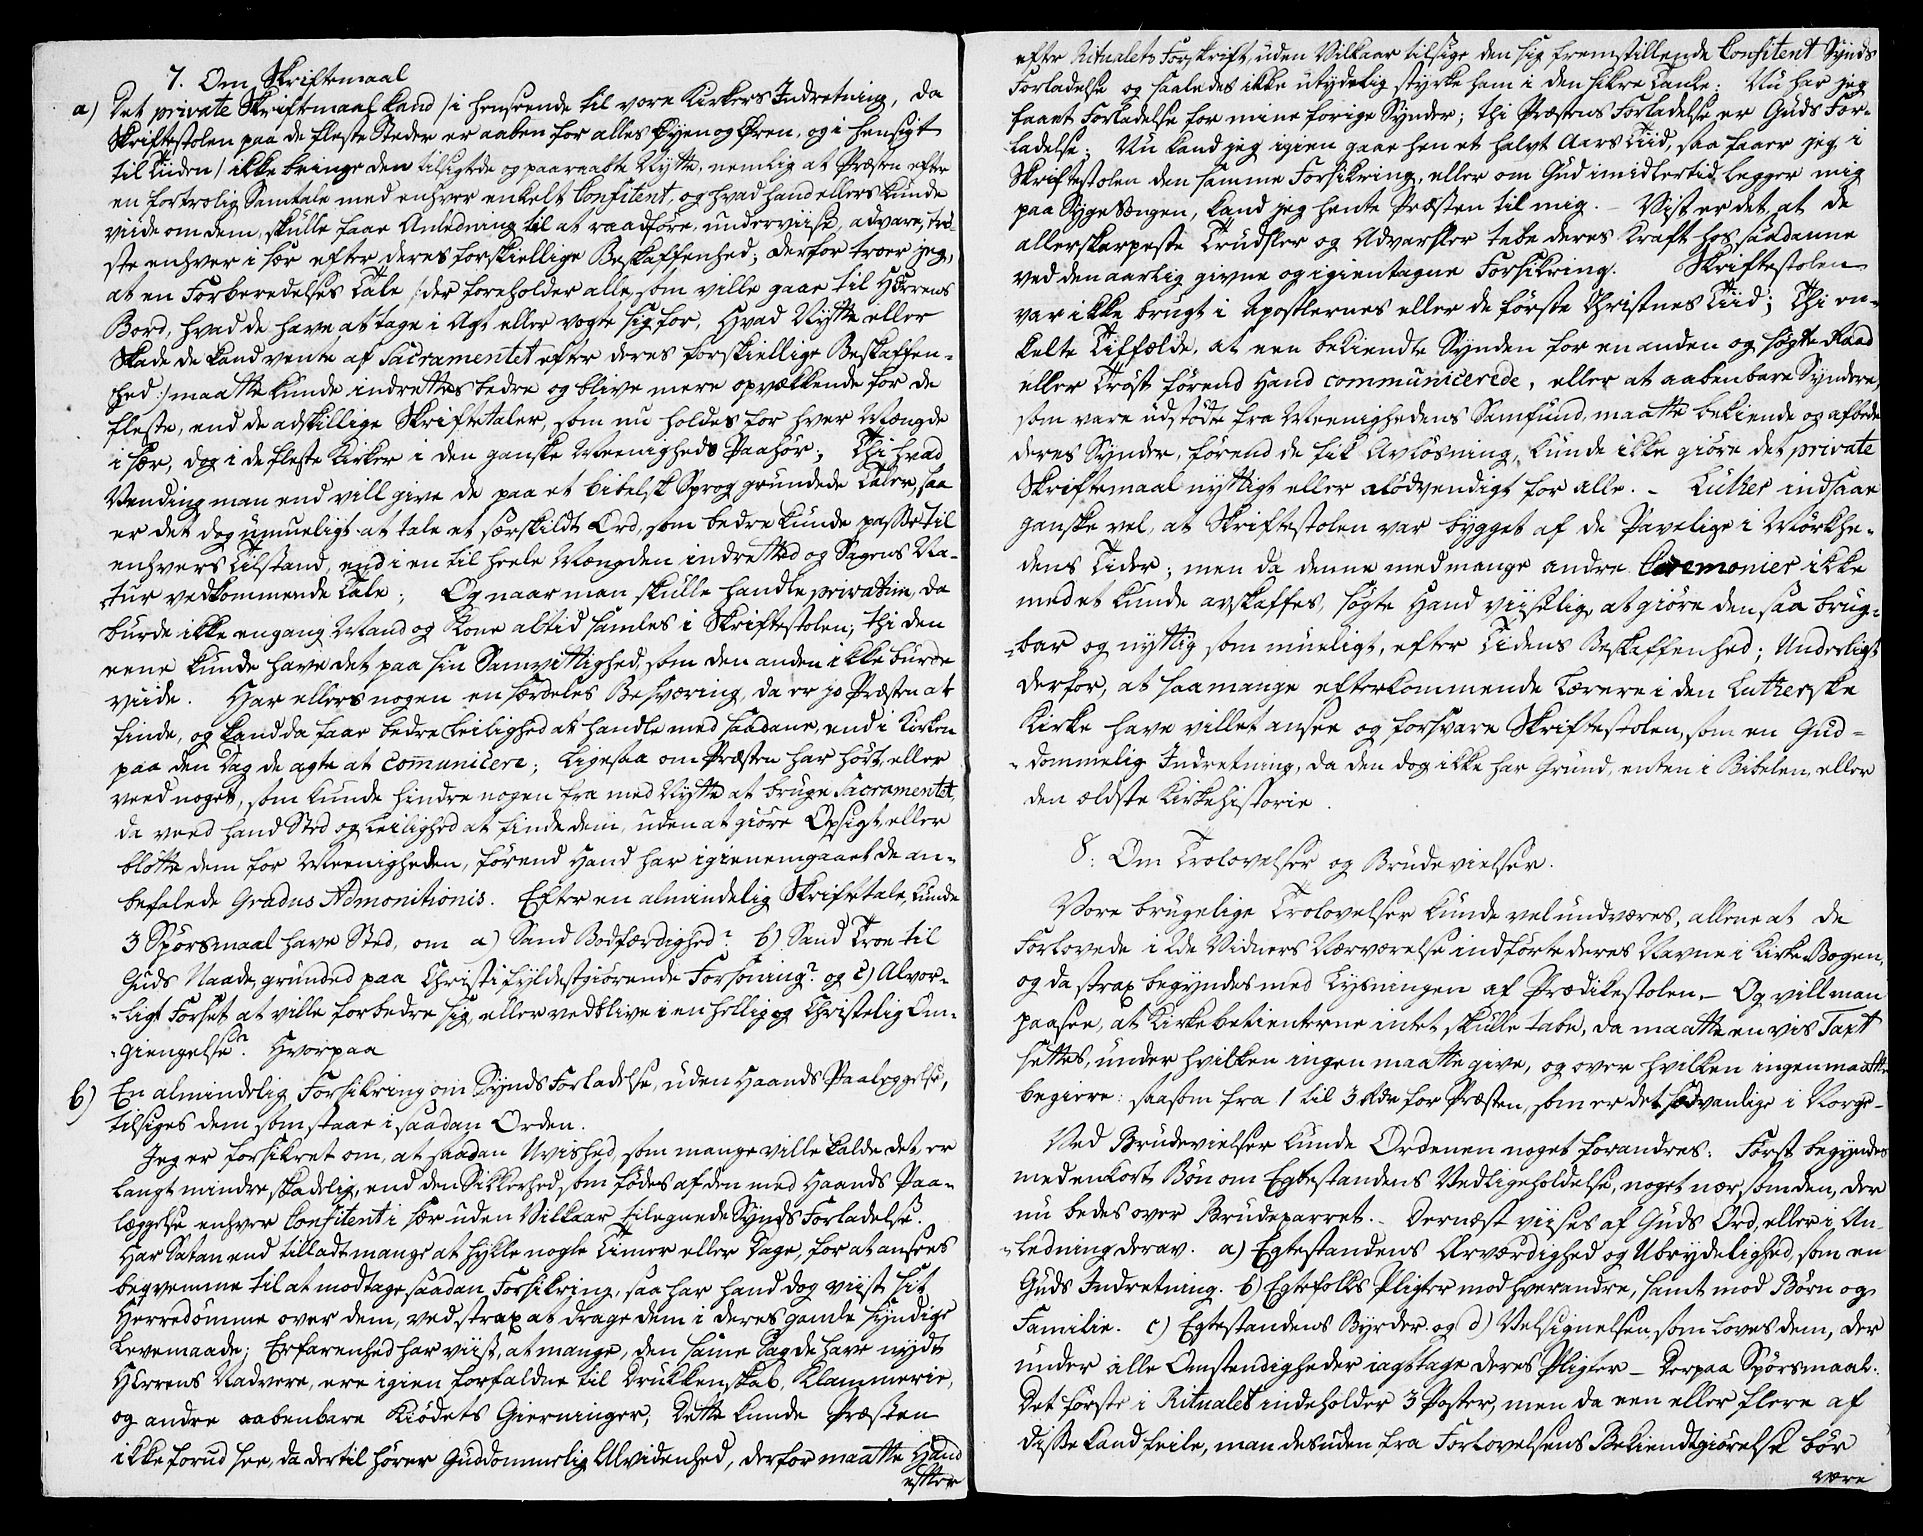 7. Om Skriftemaal
a) Det private Skriftemaal kand /: i henseende til vore Kirkers Indretning, da
Skriftestolen paa de fleste Steder er aaben for alles Øyen og Ørren, og i hensigt
til Tiiden :/ ikke bringe den tilsigtede og paaraabte Nytte, nemlig at Præsten efter
en fortrolig Samtale med enhver enkelt Confitent, og hvad hand ellers kunde
viide om dem, skulle faae Anledning til at raadføre, underviise, advare, trø-
ste enhver i sær efter deres forskiellige Beskaffenhed; derfor troer jeg,
at en Forberedelses Tale /: der foreholder alle, som ville gaae til HErrens
Bord, hvad de have at tage i Agt eller vogte sig for, Hvad Nytte eller
Skade de kand vente af Sacramentet efter deres forskiellige Beskaffen-
hed :/ maatte kunde indrettes bedre og blive mere opvækkende for de
fleste, end de adskillige Skriftetaler, som nu holdes for hver Mængde
i sær, dog i de fleste Kirker i den ganske Meenigheds Paahør; Thi hvad
Vending man end vill give de paa et bibelsk Sprog grundede Taler, saa
er det dog umueligt at tale et særskildt Ord, som bedre kunde passe til
enhvers Tilstand, end i en til heele Mængden indretted og Sagens Na-
tur vedkommende Tale; Og naar man skulle handle privatim, da
burde ikke engang Mand og Kone altid samles i Skriftestolen; thi den
eene kunde have det paa sin Samvittighed, som den anden ikke burde
viide. Har ellers nogen en særdeles Besværing, da er jo Præsten at
finde, og kand da faae bedre Leilighed at handle med saadane, end i Kirken
paa den Dag de agte at comunicere; Ligesaa om Præsten har hørt, eller
veed noget, som kunde hindre nogen fra med Nytte at bruge Sacramentet,
da veed hand Sted og Leilighed at finde dem, uden at giøre Opsigt, eller
blotte dem for Meenigheden, førend Hand har igienemgaaet de an-
befalede Gradus Admonitionis. Efter en almindelig Skriftetale, kunde
3 Spørsmaal have Sted, om a) Sand Bodfærdighed? b) Sand Troe til
Guds Naade, grunded paa Christi fyldestgiørende Forsoning? og c) Alvor-
ligt Forsæt at ville forbedre sig, eller vedblive i en hellig og Christelig Om-
giengelse? Hvorpaa
b) En almindelig Forsikring om Synds Forladelse, uden Haands Paalæggelse,
tilsiges dem som staae i saadan Orden.
Jeg er forsikret om, at saadan Uvished, som mange ville kalde det, er
langt mindre skadelig, end den Sikkerhed, som fødes af den med Haands Paa-
læggelse enhver Confitent i sær uden Vilkaar tilegnede Synds Forladelse.
Har Satan end tilladt mange at hykle nogle Timer eller Dage, for at ansees
beqvemme til at modtage saadan Forsikring, saa har hand dog viist sit
Herredømme over dem, ved strax at drage dem i deres gamle syndige
Levemaade; Erfarenhed har viist, at mange, den same Dag de have nydt
HErrens Nadvere, ere igien forfaldne til Drukkenskab, Klammerie,
og andre aabenbare Kiødets Gierninger; Dette kunde Præsten
ikke forud see, da dertil hører Guddommelig Alvidenhed, derfor maatte Hand
efter
efter Ritualets Forskrift, uden Vilkaar tilsige den sig fremstillende Confitent Synds
Forladelse og saaledes ikke utydelig styrke ham i den sikre Tanke: Nu har jeg
faaet Forladelse for mine forige Synder; thi Præstens Forladelse er Guds For-
ladelse: Nu kand jeg igien gaae hen et halvt Aars Tiid, saa faaer jeg i
Skriftestolen den samme Forsikring, eller om Gud imidlertid legger mig
paa Syge Sængen, kand jeg hente Præsten til mig. – Vist er det, at de
allerskarpeste Trudsler og Advarsler tabe deres Kraft hos saadanne
ved den aarlig givne og igientagne Forsikring. Skriftestolen
var ikke brugt i Apostlernes eller de første Christnes Tiid; Thi en-
kelte Tilfælde, at een bekiendte Synden for en anden og søgte Raad
eller Trøst førend Hand communicerede, eller at aabenbare Syndere,
som vare udstødte fra Meenighedens Samfund, maatte bekiende og afbede
deres Synder, førend de fik Avløsning, kunde ikke giøre det private
Skriftemaal nyttigt eller nødvendigt for alle. – Luther indsaae
ganske vel, at Skriftestolen var bygget af de Pavelige i Mørkhe-
dens Tider; men da denne med mange andre Ceremonier ikke
med et kunde avskaffes, søgte Hand viiselig, at giøre den saa brug-
bar og nyttig som mueligt, efter Tidens Beskaffenhed; Underligt
derfor, at saa mange efterkommende Lærere i den Lutherske
Kirke have villet ansee og forsvare Skriftestolen, som en Gud-
dommelig Indretning, da den dog ikke har Grund, enten i Bibelen, eller
den ældste Kirkehistorie.
8: Om Trolovelser og Brudevielser.
Vore brugelige Trolovelser kunde vel undværes, allene at de
Forlovede i 2de Vidners Nærværelse indførte deres Navne i Kirke-Bogen,
og da strax begyndes med Lysningen af Prædikestolen. – Og vill man
paasee, at Kirkebetienterne intet skulle tabe, da maatte en vis Taxt
settes, under hvilken ingen maatte give, og over hvilken ingen maatte
begiere: saasom fra 1 til 3 Rdr for Præsten, som er det sædvanlige i Norge –
Ved Brudevielser kunde Ordenen noget forandres: Først begyndes
med en kort Bøn om Egtestandens Vedligeholdelse, noget nær som den, der
nu bedes over Brudeparret. – Dernæst viises af Guds Ord, eller i An-
ledning derav. a) Egtestandens Ærværdighed og Ubrydelighed, som en
Guds Indretning. b) Egtefolks Pligter mod hverandre, samt mod Børn og
Familie. c) Egtestandens Byrder. og d) Velsignelsen, som loves dem, der
under alle Omstendigheder iagttage deres Pligter – Derpaa Spørsmaal.
Det første i Ritualet indeholder 3 Poster, men da een eller flere af
disse kand feile, man desuden fra Forlovelsens Bekiendtgiørelse bør
være